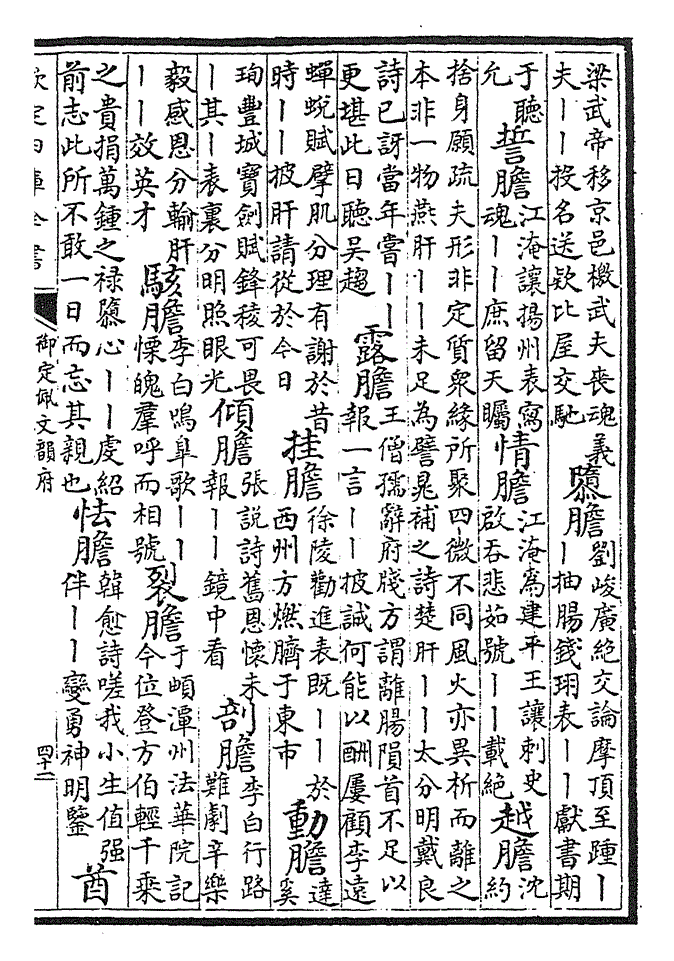 梁武帝移京邑檄武夫喪魂義
夫丨丨投名送欵比屋交馳
隳膽
劉峻廣絶交論摩頂至踵丨
丨抽腸錢珝表丨丨獻書期
于聽
允
誓膽
江淹讓揚州表寫
魂丨丨庶留天矚
情膽
江淹為建平王讓刺史
啟吞悲茹號丨丨載絶
越膽
沈
約
捨身願疏夫形非定質衆緣所聚四微不同風火亦異析而離之
本非一物燕肝丨丨未足為譬晁補之詩楚肝丨丨太分明戴良
詩已訝當年嘗丨丨
更堪此日聽吳趨
露膽
王僧孺辭府牋方謂離腸隕首不足以
報一言丨丨披誠何能以酬屢顧李遠
蟬蛻賦擘肌分理有謝於昔
時丨丨披肝請從於今日
挂膽
徐陵勸進表既丨丨於
西州方燃臍于東市
動膽
達
奚
珣豐城寶劍賦鋒稜可畏
丨其丨表裏分明照眼光
傾膽
張説詩舊恩懷未
報丨丨鏡中看
剖膽
李白行路
難劇辛樂
毅感恩分輸肝
丨丨效英才
駭膽
李白鳴臯歌丨丨
慄魄羣呼而相號
裂膽
于頔潭州法華院記
今位登方伯輕千乘
之貴捐萬鍾之禄隳心丨丨虔紹
前志此所不敢一日而忘其親也
怯膽
韓愈詩嗟我小生值强
伴丨丨變勇神明鑒
酋
欽定四庫全書
御定佩文韻府
四十二